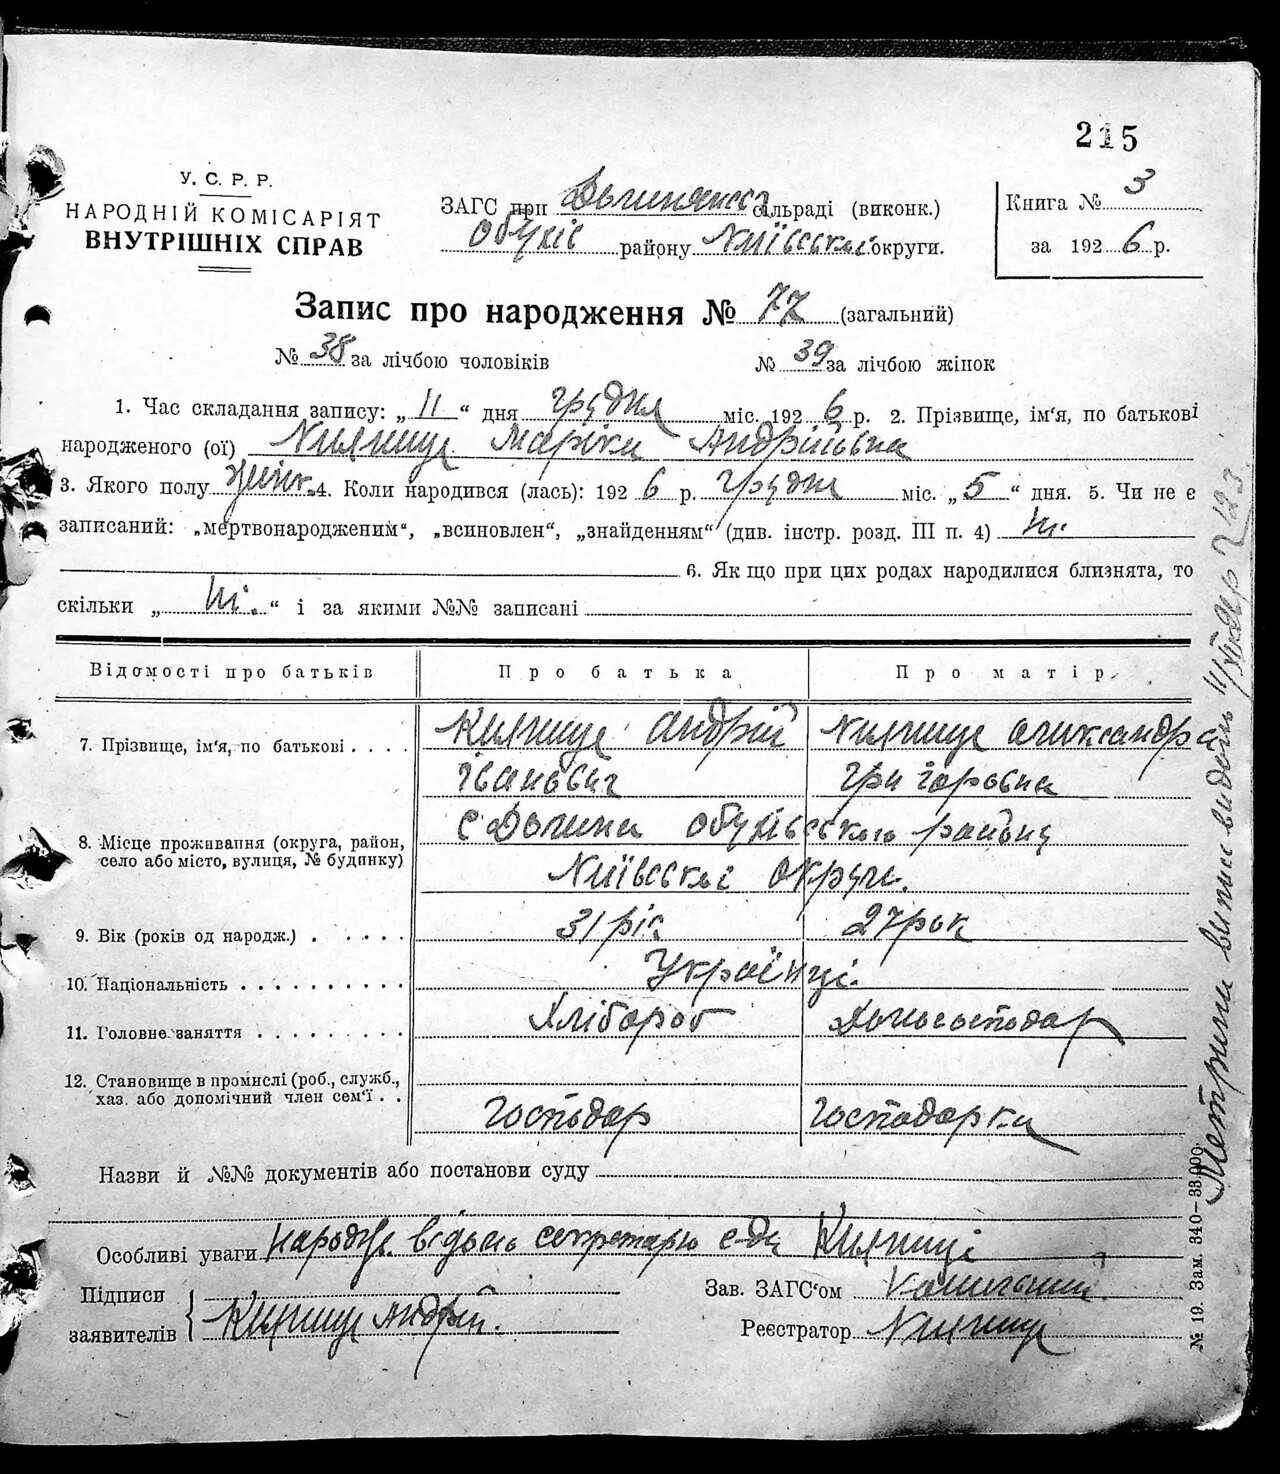 215
У. С. Р. Р.
НАРОДНІЙ КОМІСАРІЯТ
ВНУТРІШНІХ СПРАВ
ЗАГС при сільраді (виконк.)
Обухів району Київської округи.
Книга № 3
за 1926 р.
Запис про народження № 77 (загальний)
№ 38 за лічбою чоловіків № 39 за лічбою жінок
1. Час складання запису: „ 11 “ дня грудня міс. 1926 р. 2. Прізвище, ім‘я, по батькові
народженого (ої) Андріївна
3. Якого полу жінк. 4. Коли народився (лась): 1926 р. грудня міс. „ 5 “ дня. 5. Чи не є
записаний: „мертвонародженим“, „всиновлен“, „знайденням“ (див. інстр. розд. III п. 4) ні.
6. Якщо при цих родах народилися близнята, то
скільки „ ні. “ і за якими №№ записані
Відомості про батьків Про батька Про матір
7. Прізвище, ім‘я, по батькові . . . . Андрій Олександра
Іванович Григоровна
8. Місце проживання (округа, район, с Долина Обухівського району
село або місто, вулиця, № будинку) Київської округи.
9. Вік (років од народж.) . . . . . . 31 рік 27 рок
10. Національність . . . . . . . . . . Українці.
11. Головне заняття . . . . . . . . . Хлібороб Домогосподар
12. Становище в промислі (роб., служб.,
хаз. або допомічний член сем‘ї . . Господар Господарка
Назви й №№ документів або постанови суду
Особливі уваги
Підписи
заявителів Андрій.
Зав. ЗАГС‘ом
Реєстратор
№ 19. Зам. 340—33.000.